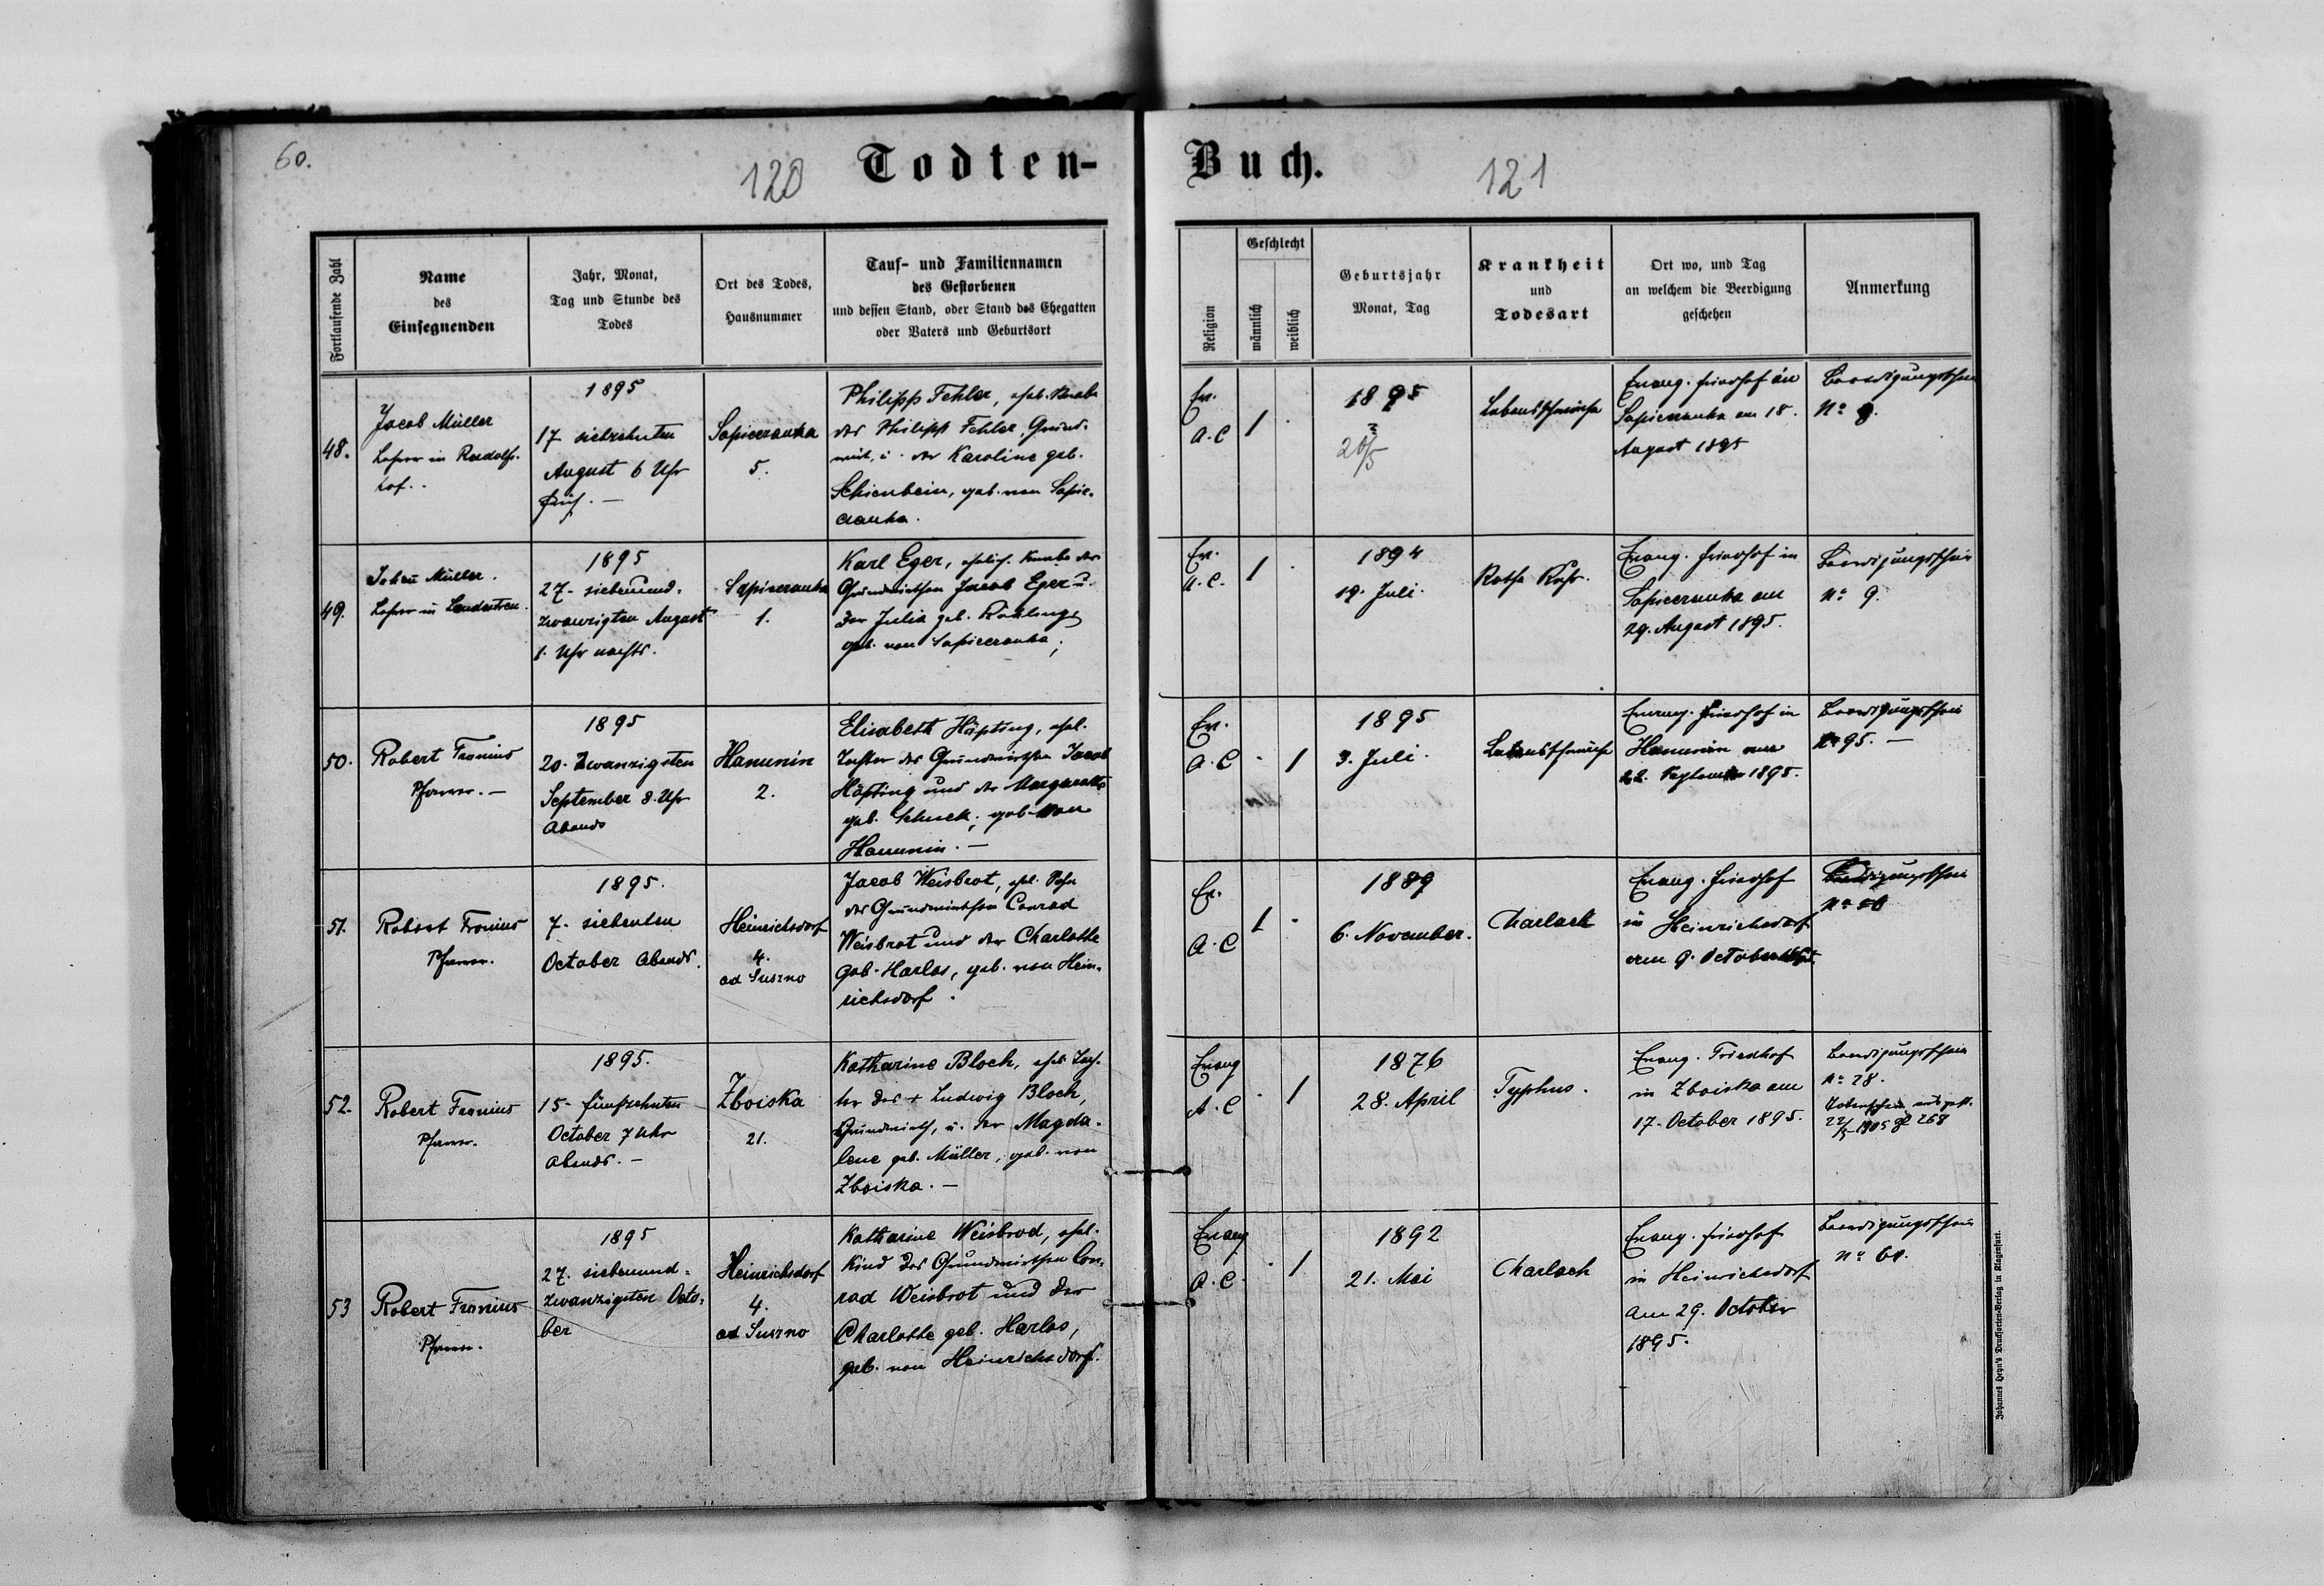 60.
120
Todten-
Buch.
121
Fortlaufende Zahl
Name
des
Einsegnenden
Jahr, Monat,
Tag und Stunde des
Todes
Ort des Todes,
Hausnummer
Tauf- und Familiennamen
des Gestorbenen
und dessen Stand, oder Stand des Ehegatten
oder Vaters und Geburtsort
Religion
Geschlecht
männlich
weiblich
Geburtsjahr
Monat, Tag
Krankheit
und
Todesart
Ort wo, und Tag
an welchem die Beerdigung
geschehen
Anmerkung
48.
Jacob Müller
Lehrer in Rudolfs-
hof.
1895
17 siebzehnten
August 6 Uhr
früh. —
Sapiezanka
5.
Philipp Fehler, ehel. Knabe
des Philipp Fehler, Grund-
wirt, u. der Karoline geb.
Schienbein, geb. von Sapie-
zanka.
Ev.
A. C
1
1895
20/5
Lebensschwäche
Evang. Friedhof in
Sapiezanka am 18.
August 1895
Beerdigungsschein
No 8.
49.
Müller.
Lehrer in
1895
27- siebenund-
zwanzigsten August
1. Uhr nachts.
Sapiezanka
1.
Karl Eger, ehelich. Knabe des
Grundwirthen Jacob Eger u.
der Julia geb.
geb. von Sapiezanka;
Ev.
A. C.
1
1894
19. Juli.
Rothe Ruhr.
Evang. Friedhof in
Sapiezanka am
29. August 1895.
Beerdigungsschein
No 9.
50.
Robert Fronius
Pfarrer. —
1895
20- Zwanzigsten
September 8. Uhr
Abends
Hanunin
2.
Elisabeth Häpting, ehel.
Tochter des Grundwirthen Jacob
Häpting und der Margarethe
geb. Schuck; geb. von
Hanunin. —
Ev.
A. C
1
1895
3. Juli.
Lebensschwäche
Evang. Friedhof in
Hanunin am
22. September 1895.
Beerdigungsschein
No 95. —
51.
Robert Fronius
Pfarrer.
1895.
7- siebenten
October Abends.
Heinrichsdorf
4.
ad Suszno
Jacob Weisbrot, ehel. Sohn
des Grundwirthen Conrad
Weisbrot und der Charlotte
geb. Harlos, geb. von Hein-
richsdorf.
Ev.
A. C
1
1889
6. November.
Charlach
Evang. Friedhof
in Heinrichsdorf
am 9. October 1895.
Beerdigungsschein
No
52.
Robert Fronius
Pfarrer.
1895.
15- fünfzehnten
October 7 Uhr
Abends. —
Zboiska
21.
Katharine Bloch, ehel. Toch-
ter des + Ludwig Bloch,
Grundwirth, u. der Magda-
lene geb. Müller, geb. von
Zboiska. —
Evang
A. C
1
1876
28. April
Typhus.
Evang. Friedhof
in Zboiska am
17. October 1895.
Beerdigungsschein
No 28.
Todtenschein ausgest.
22/5 1905 Z 268
53
Robert Fronius
Pfarrer.
1895
27. siebenund-
zwanzigsten Octo-
ber
Heinrichsdorf
4.
ad Suszno
Katharine Weisbrod, ehel.
Kind des Grundwirthen Con-
rad Weisbrot und der
Charlotte geb. Harlos,
geb. von Heinrichsdorf.
Evang
A. C.
1
1892
21. Mai
Charlach
Evang. Friedhof
in Heinrichsdorf
am 29. October
1895.
Beerdigungsschein
No
Johannes Heyn's Drucksorten-Verlag in Klagenfurt.